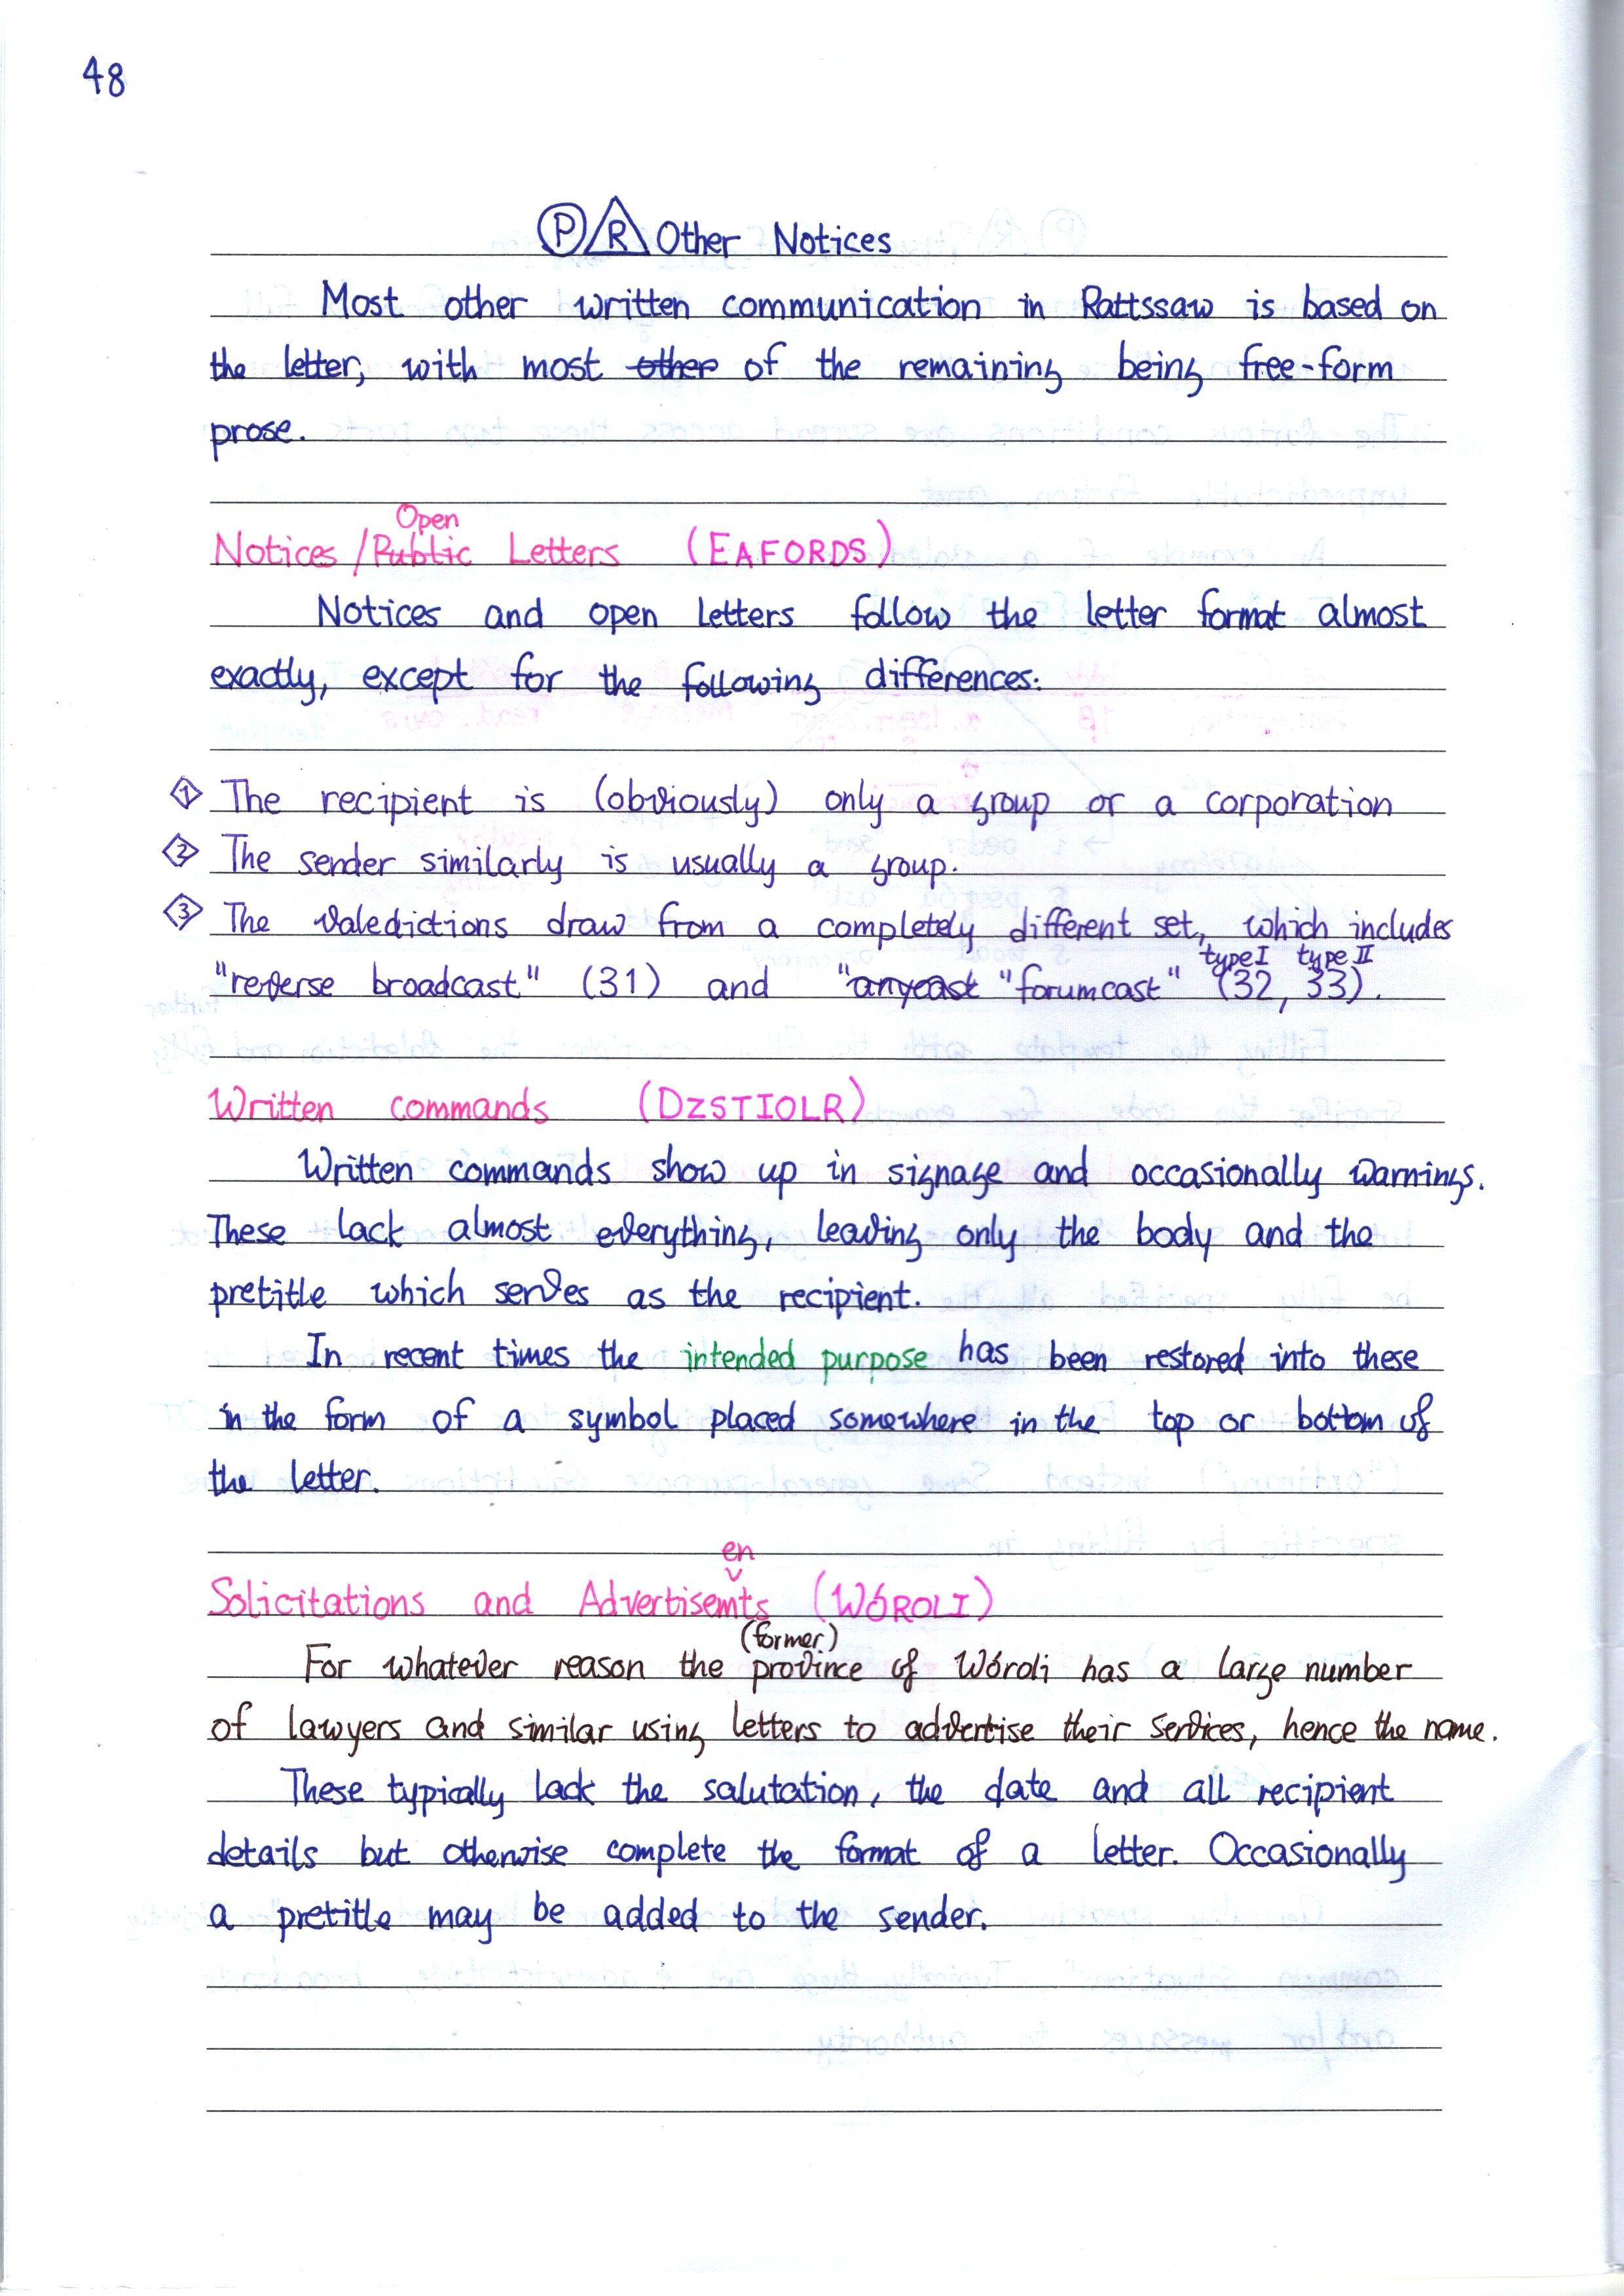 48
P R Other Notices
Most other written communication in Rattssaw is based on
the letter, with most other of the remaining being free-form
prose.
Open
Notices / Public Letters (EAFORDS)
Notices and open letters follow the letter format almost
exactly, except for the following differences:
1 The recipient is (obviously) only a group or a corporation
2 The sender similarly is usually a group.
3 The valedictions draw from a completely different set, which includes
type I type II
"reverse broadcast" (31) and "anycast "forumcast" (32, 33).
Written commands (DZSTIOLR)
Written commands show up in signage and occasionally warnings.
These lack almost everything, leaving only the body and the
pretitle which serves as the recipient.
In recent times the intended purpose has been restored into these
in the form of a symbol placed somewhere in the top or bottom of
the letter.
en
Solicitations and Advertisemts (WÓROLI)
(former)
For whatever reason the province of Wóroli has a large number
of lawyers and similar using letters to advertise their services, hence the name.
These typically lack the salutation, the date and all recipient
details but otherwise complete the format of a letter. Occasionally
a pretitle may be added to the sender.